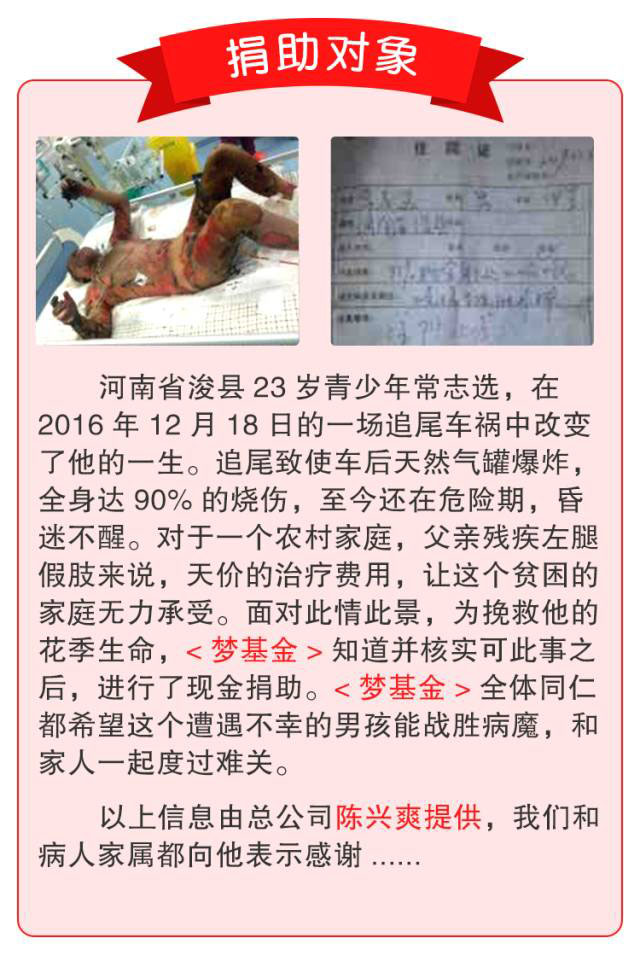 捐助对象
住院证
河南省浚县 23 岁青少年常志选，在
2016 年 12 月 18 日的一场追尾车祸中改变
了他的一生。追尾致使车后天然气罐爆炸，
全身达 90% 的烧伤，至今还在危险期，昏
迷不醒。对于一个农村家庭，父亲残疾左腿
假肢来说，天价的治疗费用，让这个贫困的
家庭无力承受。面对此情此景，为挽救他的
花季生命，＜梦基金＞知道并核实可此事之
后，进行了现金捐助。＜梦基金＞全体同仁
都希望这个遭遇不幸的男孩能战胜病魔，和
家人一起度过难关。
以上信息由总公司陈兴爽提供，我们和
病人家属都向他表示感谢 ......